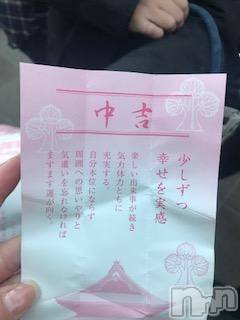 中吉
少しずつ
幸せを実感
楽しい出来事が続き
気力体力ともに
充実する。
自分本位にならず
周囲への思いやりと
気遣いを忘れなければ
ますます運が向く。